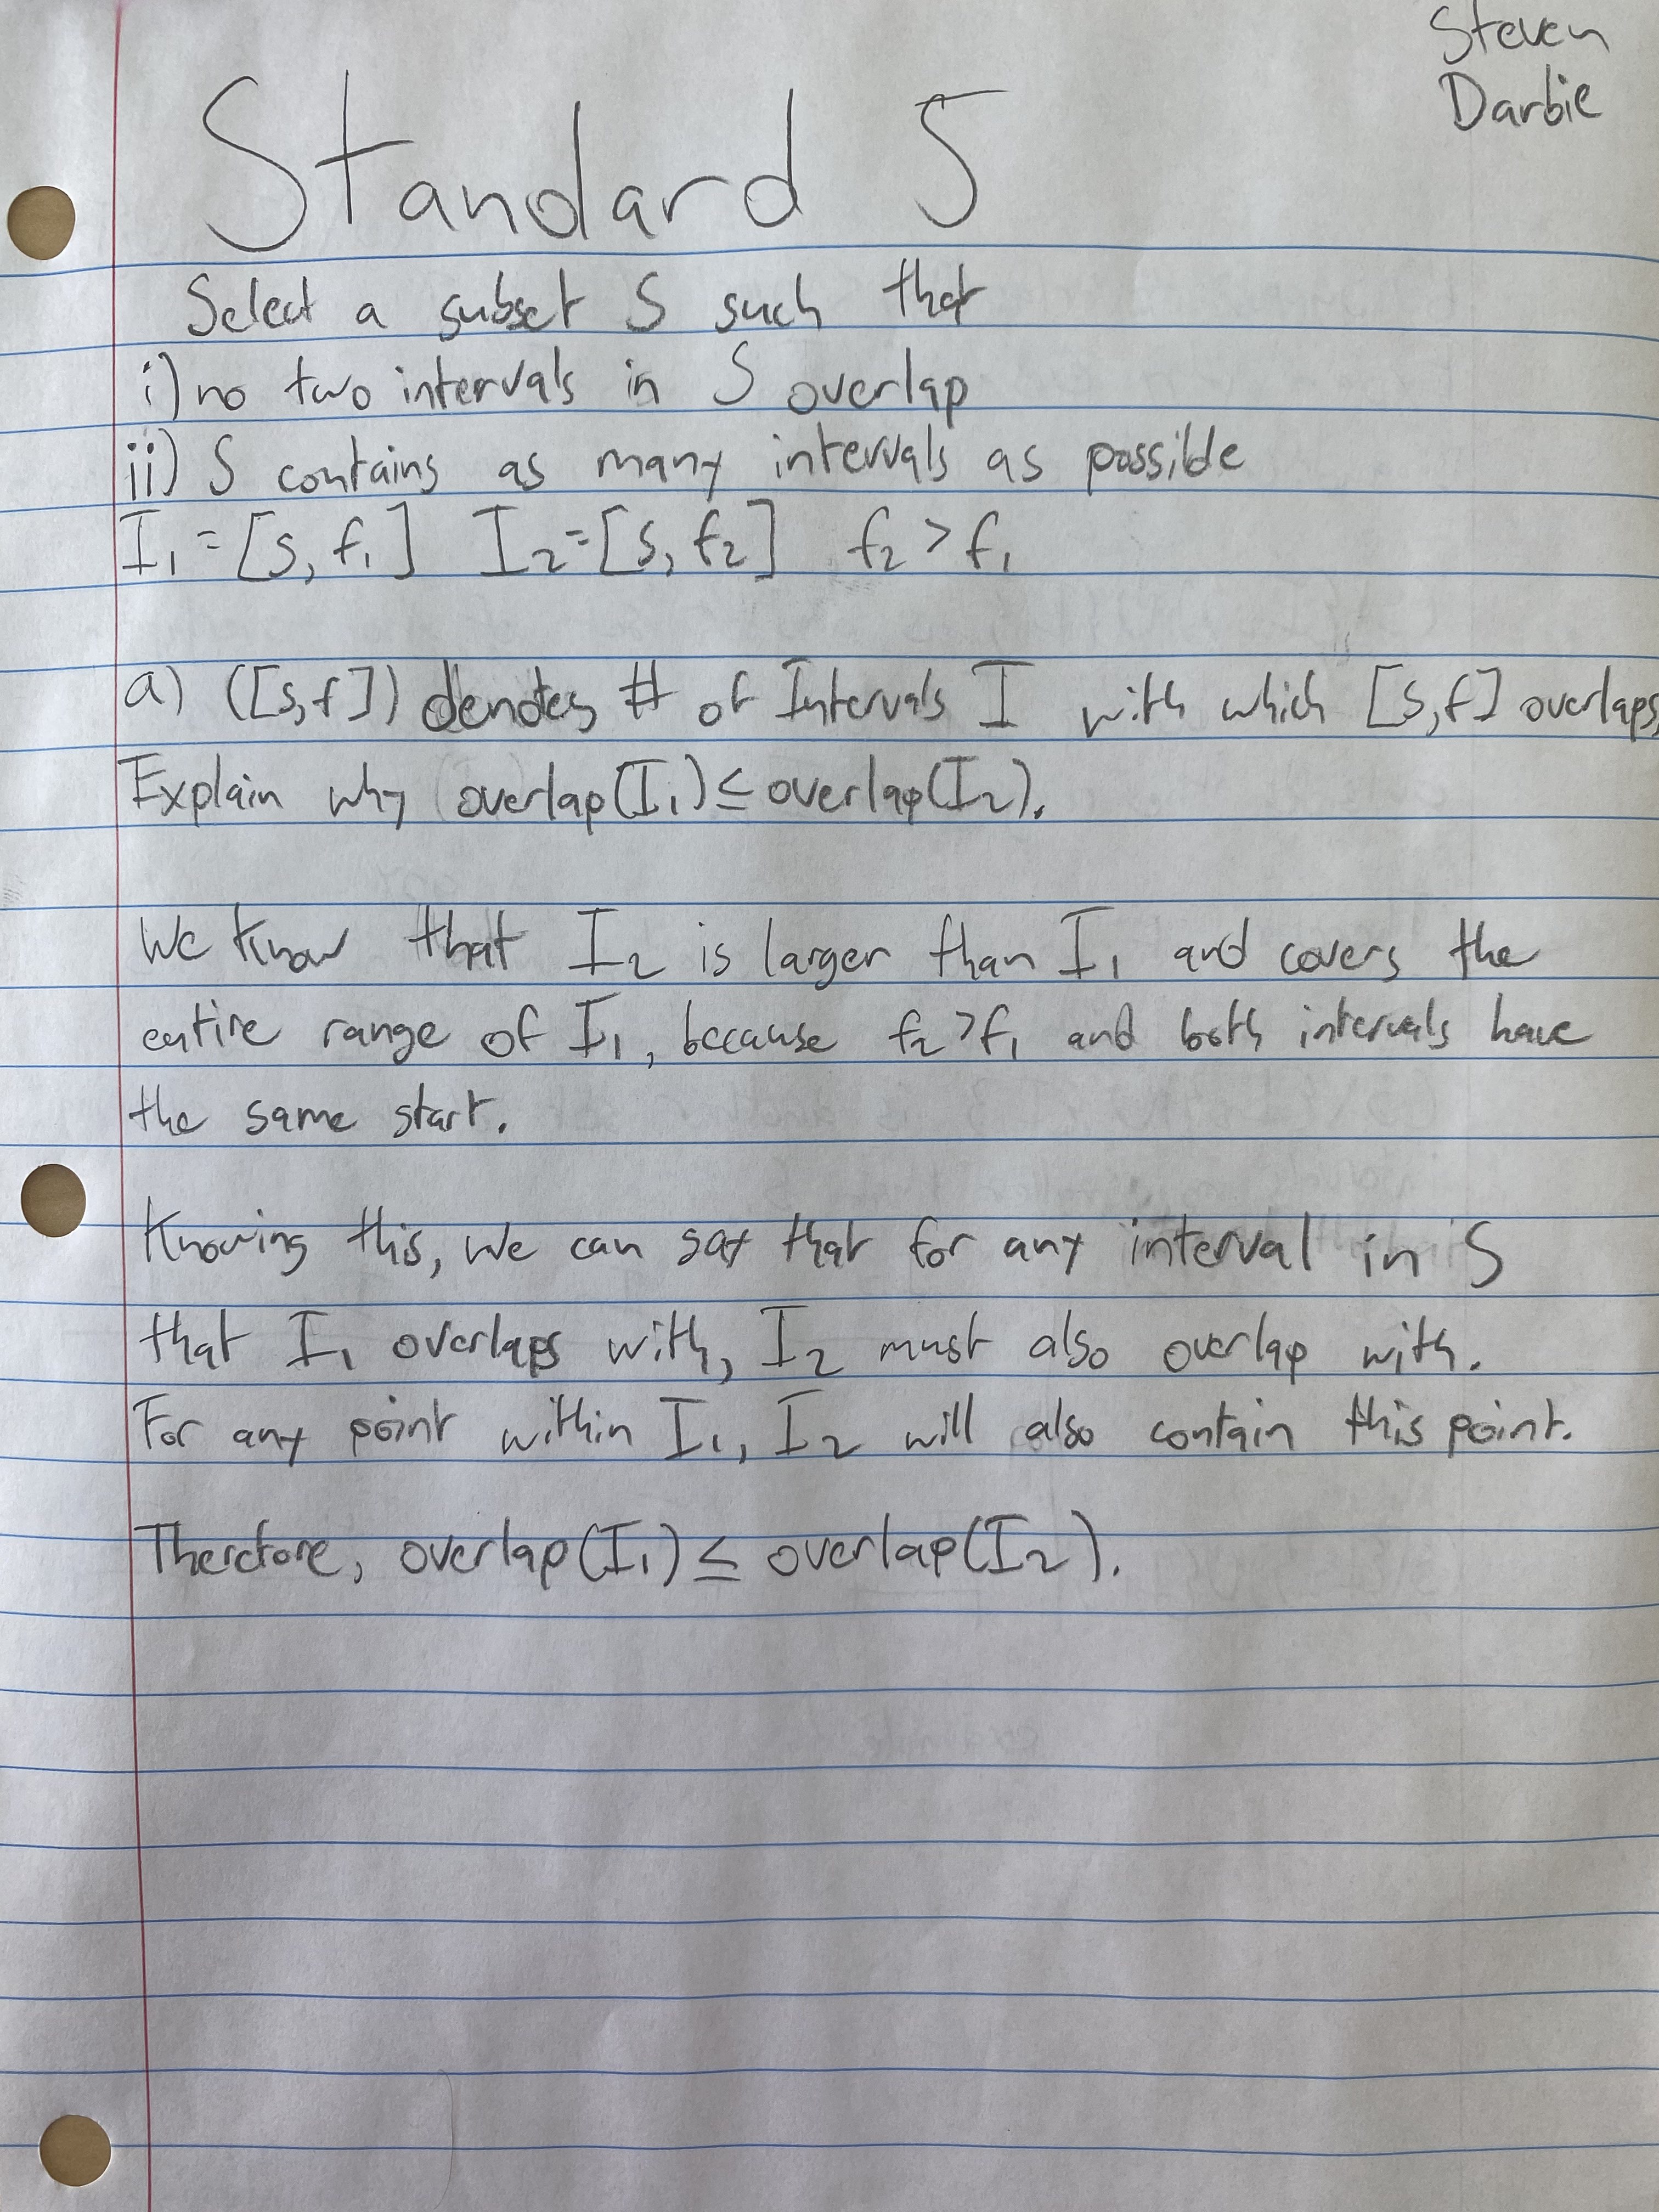 Steven
Darbie
Standard 5
Select a subset S such that
i) no two intervals in S overlap
ii) S contains as many intervals as possible
I₁ = [s, f₁] I₂ = [s, f₂] f₂ > f₁
a) ([s,f]) denotes # of Intervals I with which [s,f] overlaps.
Explain why overlap(I₁) ≤ overlap(I₂).
We know that I₂ is larger than I₁ and covers the
entire range of I₁, because f₂ > f₁ and both intervals have
the same start.
Knowing this, we can say that for any interval in S
that I₁ overlaps with, I₂ must also overlap with.
For any point within I₁, I₂ will also contain this point.
Therefore, overlap(I₁) ≤ overlap(I₂).